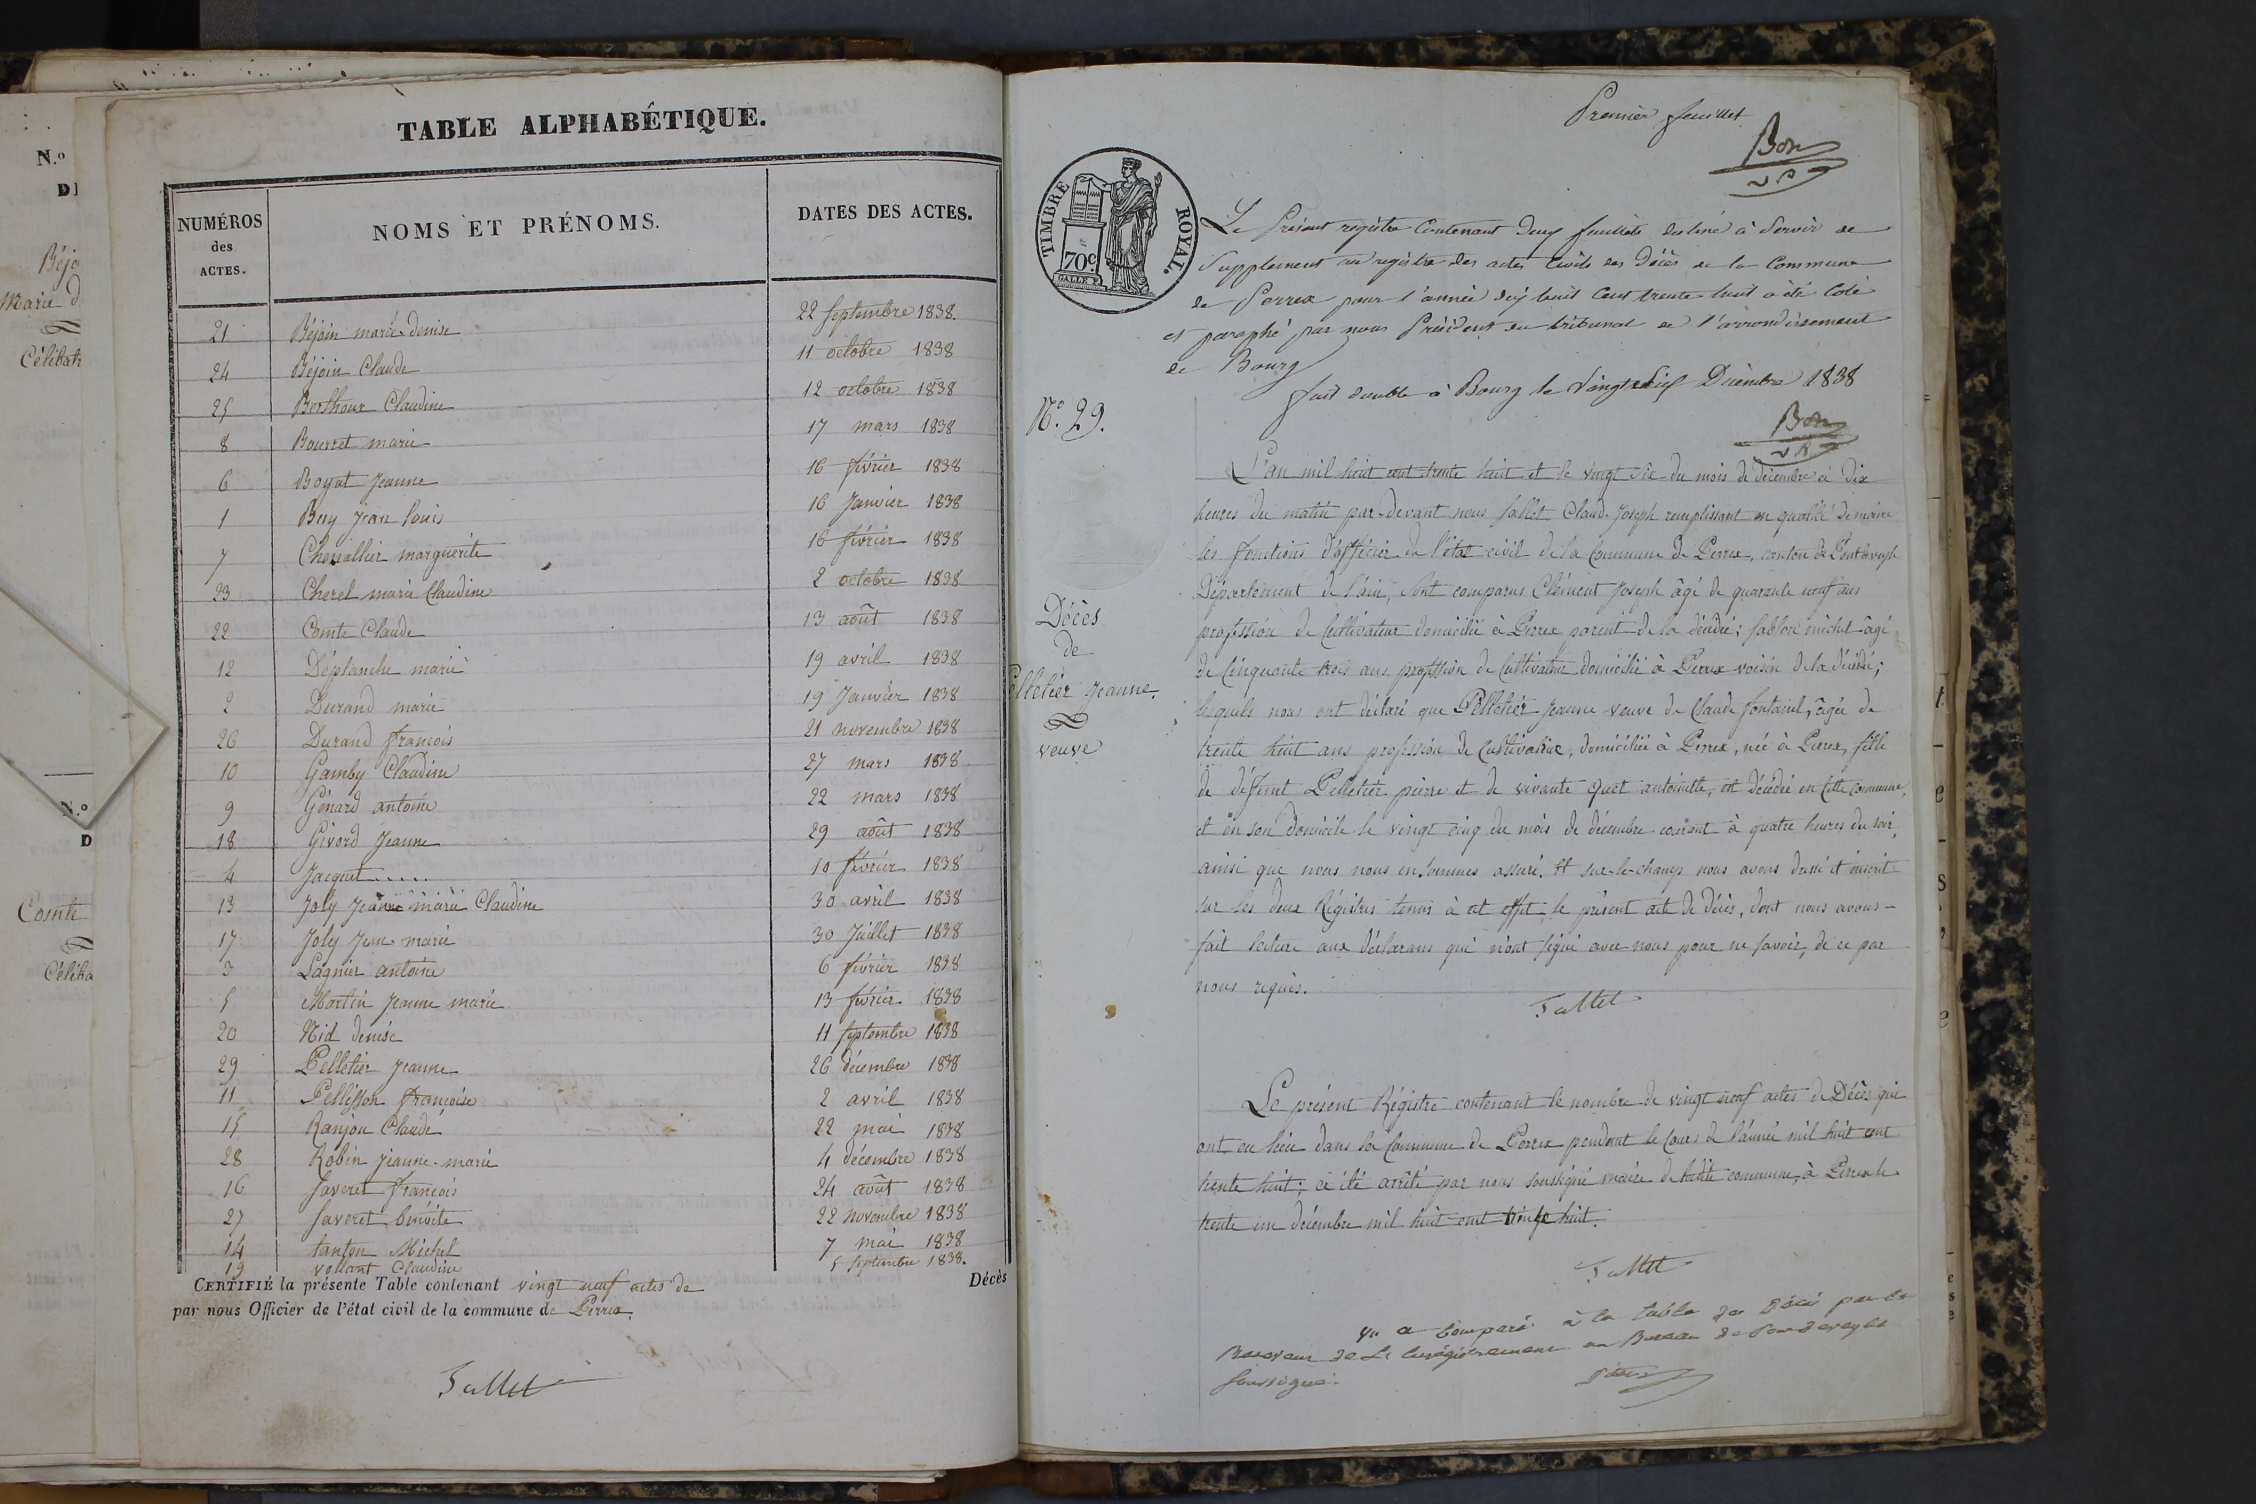 N.o
Béjo
Marie d
Célibat
N.o
D
Comte
Céliba
TABLE ALPHABÉTIQUE.
NUMÉROS des ACTES.
NOMS ET PRÉNOMS.
DATES DES ACTES.
21 Béjoin marie denise 22 septembre 1838.
24 Béjoin Claude 11 octobre 1838
25 Berthour Claudine 12 octobre 1838
8 Bourret marie 17 mars 1838
6 Boyat Jeanne 16 février 1838
1 Buy Jean louis 16 Janvier 1838
7 Chevallier marguerite 16 février 1838
23 Cherel marie Claudine 2 octobre 1838
22 Comte Claude 13 août 1838
12 Déplanche marie 19 avril 1838
2 Durand marie 19 Janvier 1838
26 Durand françois 21 novembre 1838
10 Gamby Claudine 27 mars 1838
9 Génard antoine 22 mars 1838
18 Givord Jeanne 29 août 1838
4 Jacquet..... 10 février 1838
13 Joly Jeanne marie Claudine 30 avril 1838
17 Joly Jean marie 30 Juillet 1838
3 Lagnier antoine 6 février 1838
5 Martin Jeanne marie 13 février 1838
20 Nid denise 11 septembre 1838
29 Pelletier Jeanne 26 décembre 1838
11 Pellisson françoise 2 avril 1838
15 Ranjon Claude 22 mai 1838
28 Robin jeanne-marie 4 décembre 1838
16 Saveret françois 24 août 1838
27 Saveret benoite 22 novembre 1838
14 tanton Michel 7 mai 1838
19 vollant Claudine 5 septembre 1838.
CERTIFIÉ la présente Table contenant vingt neuf actes de Décès
par nous Officier de l'état civil de la commune de Perrex.
Sallet
Premier feuillet
Bon
V P
TIMBRE ROYAL.
70c.
Le Présent registre Contenant deux feuillets destiné à Servir de
Supplement au registre des actes Civils des Décès de la Commune
de Perrex pour l'année dix huit Cent trente huit a été Coté
et paraphé par nous Président du tribunal de l'arrondissement
de Bourg
fait double à Bourg le Vingt six Décembre 1838
Bon
N.o 29.
Décès
de
Pelletier Jeanne.
veuve
L'an mil huit cent trente huit et le vingt six du mois de décembre à dix
heures du matin par-devant nous Sallet Claude Joseph remplissant en qualité de maire
les fonctions d'officier de l'état civil de la Commune de Perrex, canton de Pontdeveyle
Département de l'ain, sont comparus Clément Joseph âgé de quarante neuf ans
profession de Cultivateur domicilié à Perrex parent de la décédée; Sablon michel âgé
de Cinquante trois ans profession de Cultivateur domicilié à Perrex voisin de la décédée;
lesquels nous ont déclaré que Pelletier Jeanne veuve de Claude fontainel, âgée de
trente huit ans profession de Cultivatrice, domiciliée à Perrex, née à Perrex, fille
de défunt Pelletier pierre et de vivante Quet antoinette, est décédée en Cette Commune,
et en son domicile le vingt cinq du mois de décembre courant à quatre heures du soir,
ainsi que nous nous en sommes assuré. Et sur-le-champ nous avons dressé et inscrit
sur les deux Régistres tenus à cet effet le présent acte de décès, dont nous avons
fait lecture aux déclarans qui n'ont signé avec nous pour ne savoir, de ce par
nous requis.
Sallet
Le présent Régistre contenant le nombre de vingt neuf actes de Décès qui
ont eu lieu dans la Commune de Perrex pendant le cours de l'année mil huit cent
trente huit; a été arrêté par nous soussigné maire de ladite commune, à Perrex le
trente un décembre mil huit cent trente huit.
Sallet
Vu a Comparé à la table des Décès par le
Receveur de L'Enregistrement au Bureau de Pontdeveyle
Soussigné.